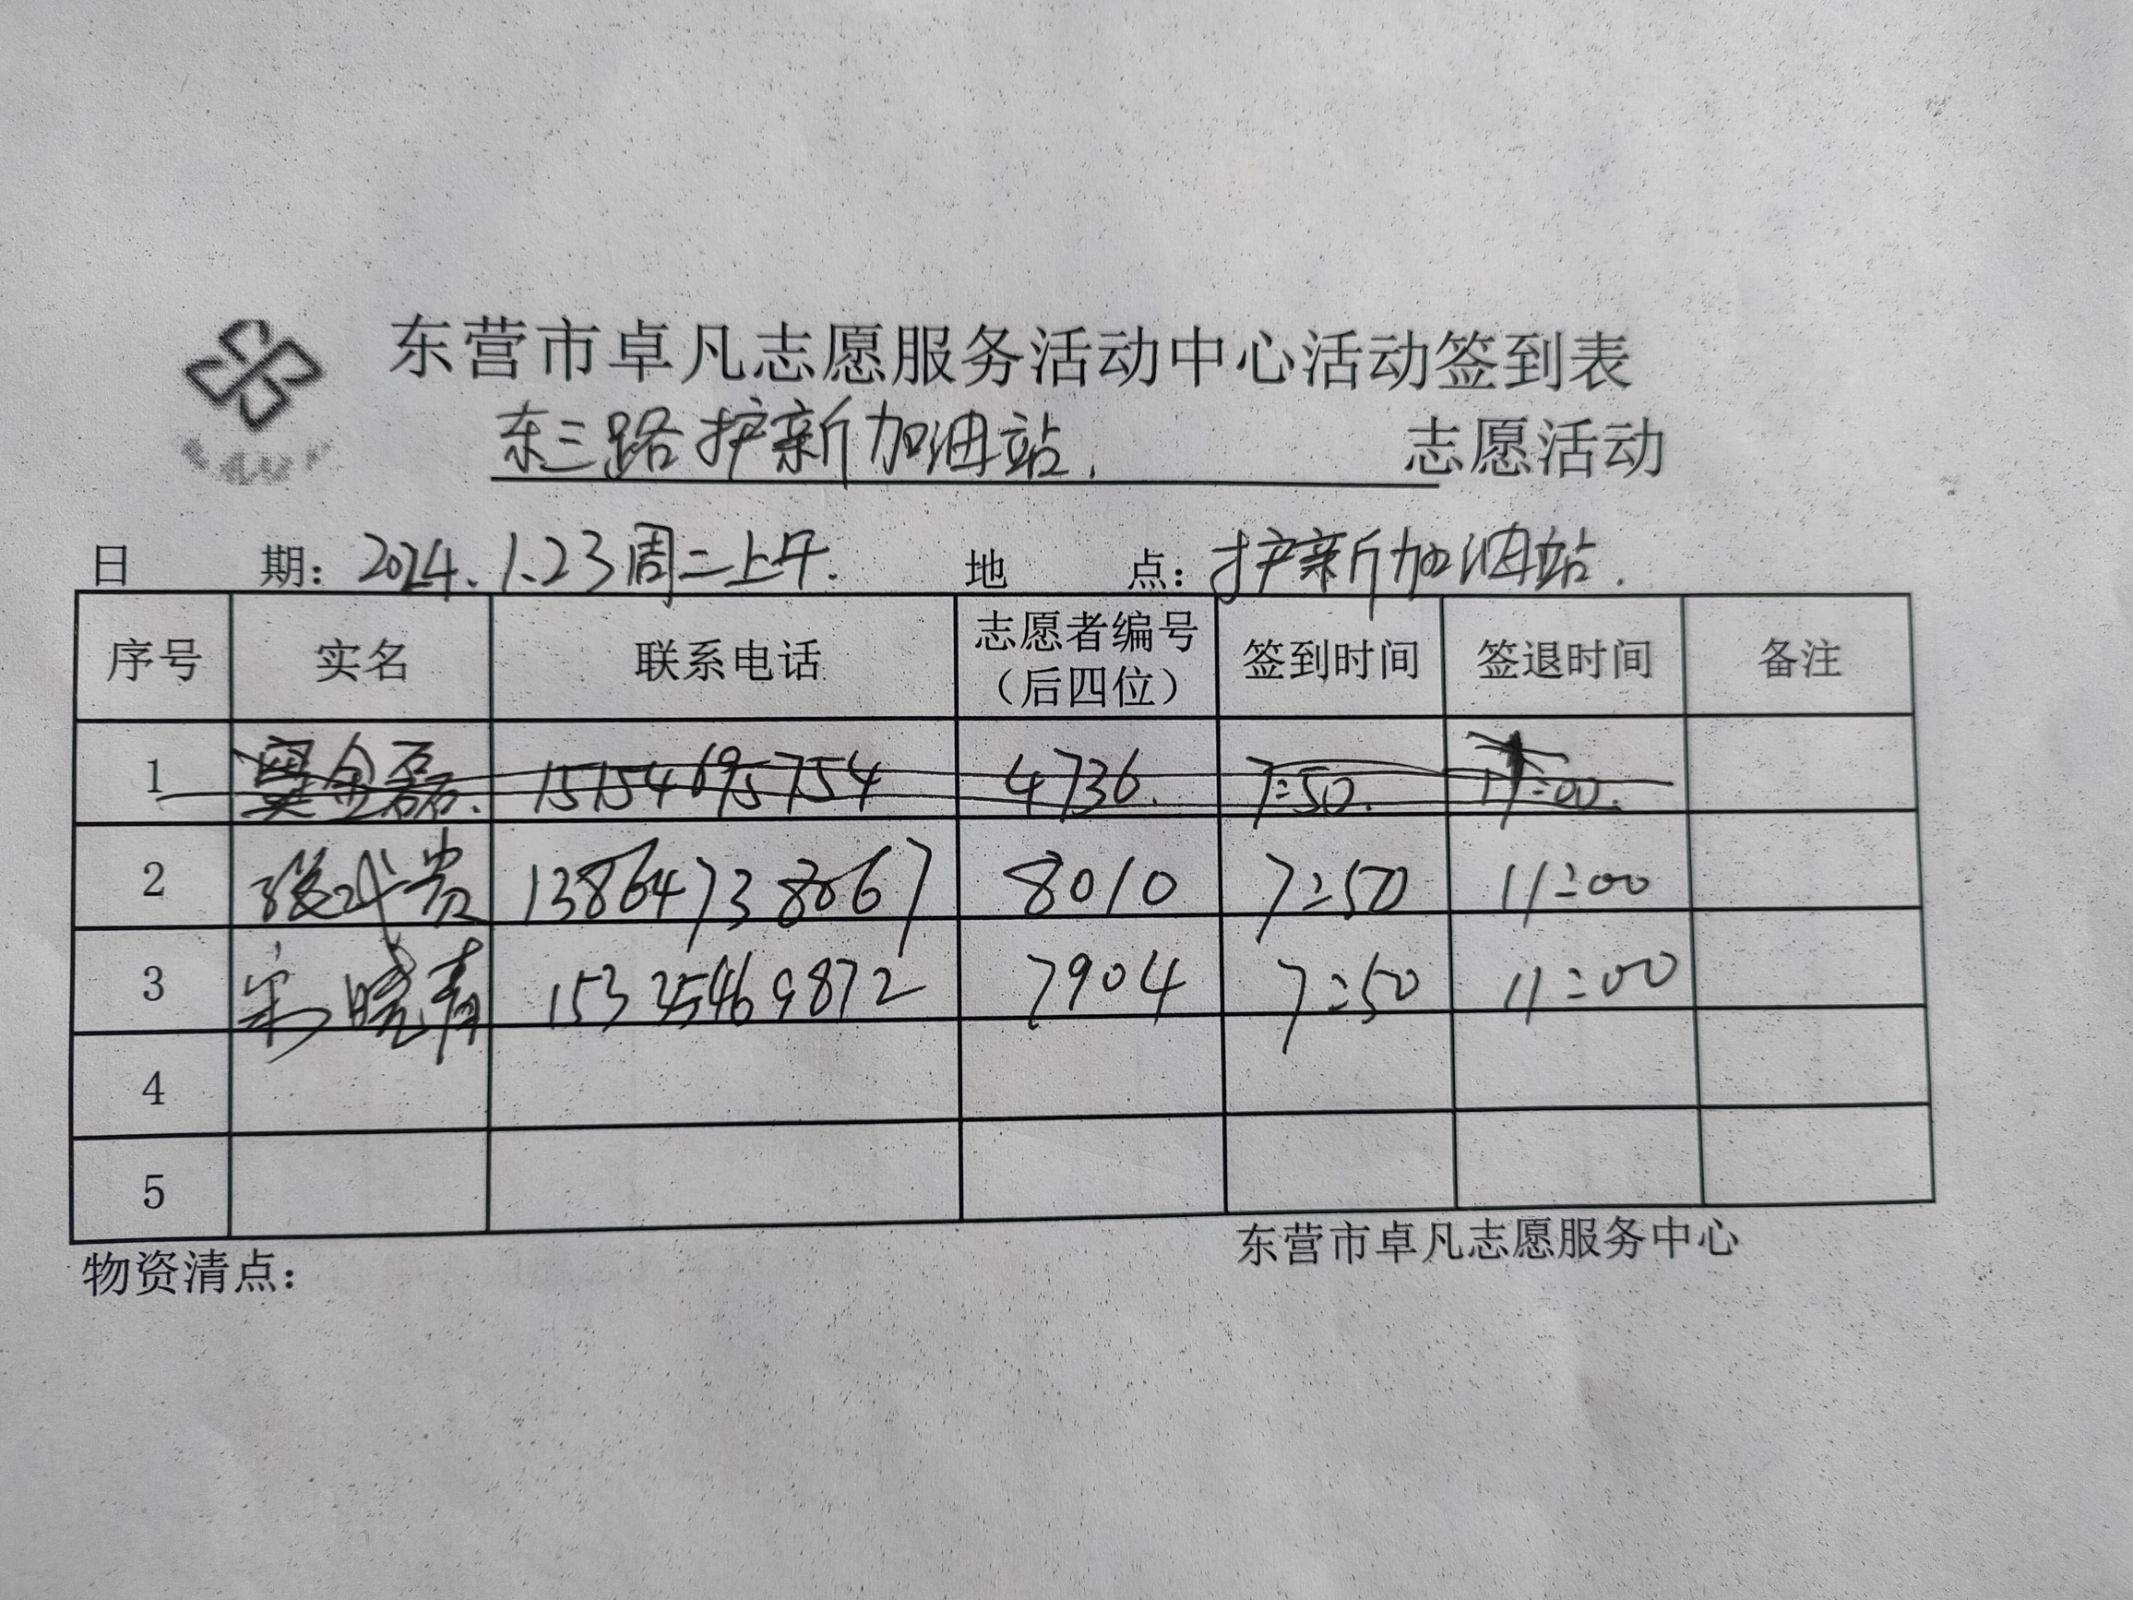 东营市卓凡志愿服务活动中心活动签到表
东三路护新加油站. 志愿活动
日 期: 2024.1.23周二上午. 地 点: 护新加油站.
序号 实名 联系电话 志愿者编号（后四位） 签到时间 签退时间 备注
1 金磊. 15154695754 4736. 7:50. 11:00.
2 张武贵 13864738067 8010 7:50 11:00
3 宋晓青 15325469872 7904 7:50 11:00
4
5
物资清点: 东营市卓凡志愿服务中心